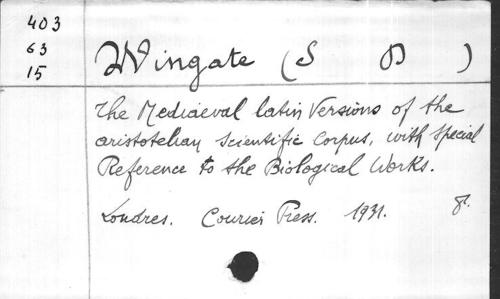 403
63
15
Wingate (S D)
The Mediaeval latin Versions of the
aristotelian scientific Corpus, with special
Reference to the Biological Works.
Londres. Courier Press. 1931. 8º.